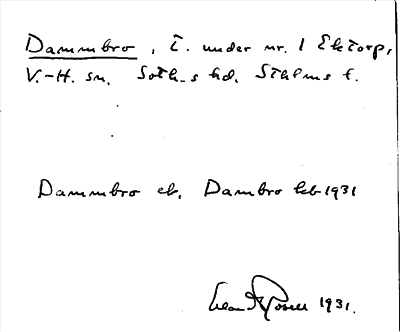 Dammbro, t. under nr. 1 Ektorp,
V.-H. sn. Soth-s hd. Sthlms l.
Dammbro ek. Dambro hcb 1931
1931.